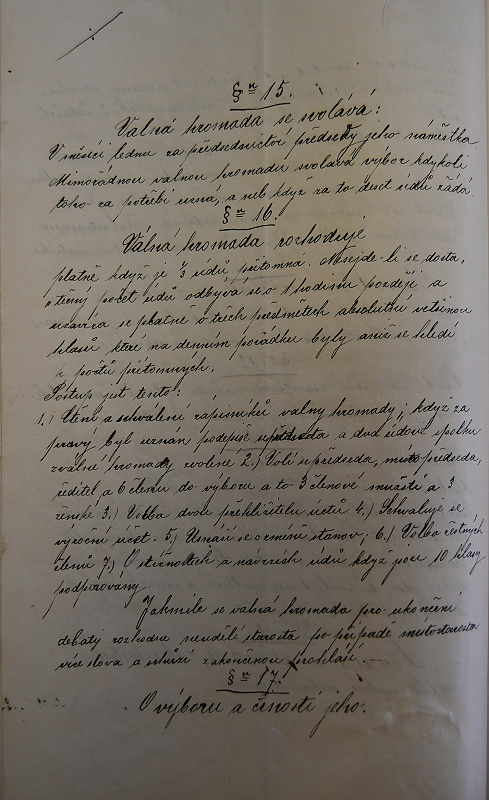 § 15.
Valná hromada se svolává:
V měsíci lednu za předsednictví předsedy jeho náměstka
Mimořádnou valnou hromadu svolává výbor kdykoli
toho za potřebí uzná, a neb když za to deset údů žádá.
§ 16.
Válná hromada rozhoduje
platně když je ⅓ údů přítomna. Nesejde-li se dosta,
tečný počet údů odbývá se o 1 hodinu později a
uzavírá se platně o všech předmětech absolutní většinou
hlasů které na denním pořádku byly aniž se hledí
k počtu přítomných.
Postup jest tento:
1.) Čtení a schválení zápisníků valny hromady; když za
pravy byl uznán podepíše a dva údové spolku
zválné hromady zvolené 2.) Volí předseda, místopředseda,
ředitel a 6 členu do výboru a to 3 členové mužští a 3
ženské 3.) Volba dvou přehlížitelu účtů 4.) Schvaluje se
vyroční účet. 5.) Usnáší se o změně stanov; 6.) Volba čestných
členů 7.) O stížnostech a návrzích údů když jsou 10 hlasy
podporovány.
Jakmile se valná hromada pro ukončení
debaty rozhodne neudělí starosta po případě místostarosta
více slova a schůzi zakončenou prohlásí.—
§ 17.
O výboru a činosti jeho.